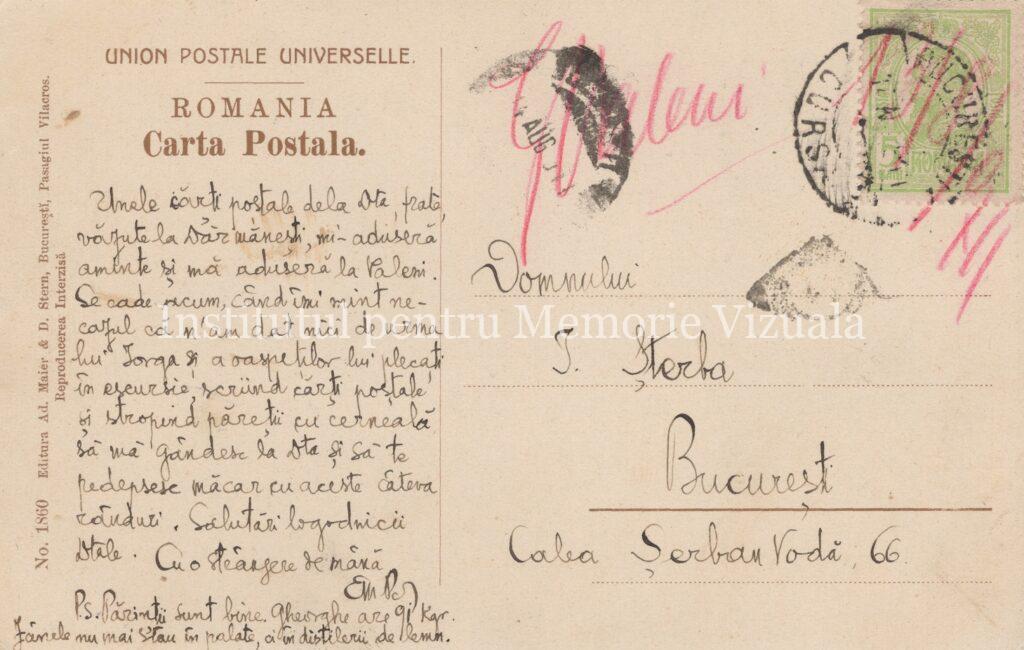 UNION POSTALE UNIVERSELLE.
ROMANIA
Carta Postala.
No. 1860 Editura Ad. Maier & D. Stern, Bucureştĭ, Pasagiul Vilacros.
Reproducerea Interzisă
Unele cărti poştale dela Dta, frate,
văzute la Dărmăneşti, mi-aduseră
aminte şi mă aduseră la Valeni.
Se cade acum, când îmi mint ne-
cazul că n'am dat nici de urma
lui Iorga şi a oaspeţilor lui plecaţi
în escursie, scriind cărţi poştale
şi stropind păreţii cu cerneală
să mă gândesc la Dta şi să te
pedepsesc măcar cu aceste câteva
rânduri. Salutări logodnicii
Dtale. Cu o strângere de mână
P.S. Părinţii sunt bine. Gheorghe are 91 Kgr.
nu mai stau în palate, ci în distilerii de lemn.
Valeni
AUG
BUCURESTI
CURS
5
Domnului
I. Şterba
Bucureşti
Calea Şerban Vodă, 66
Institutul pentru Memorie Vizuala